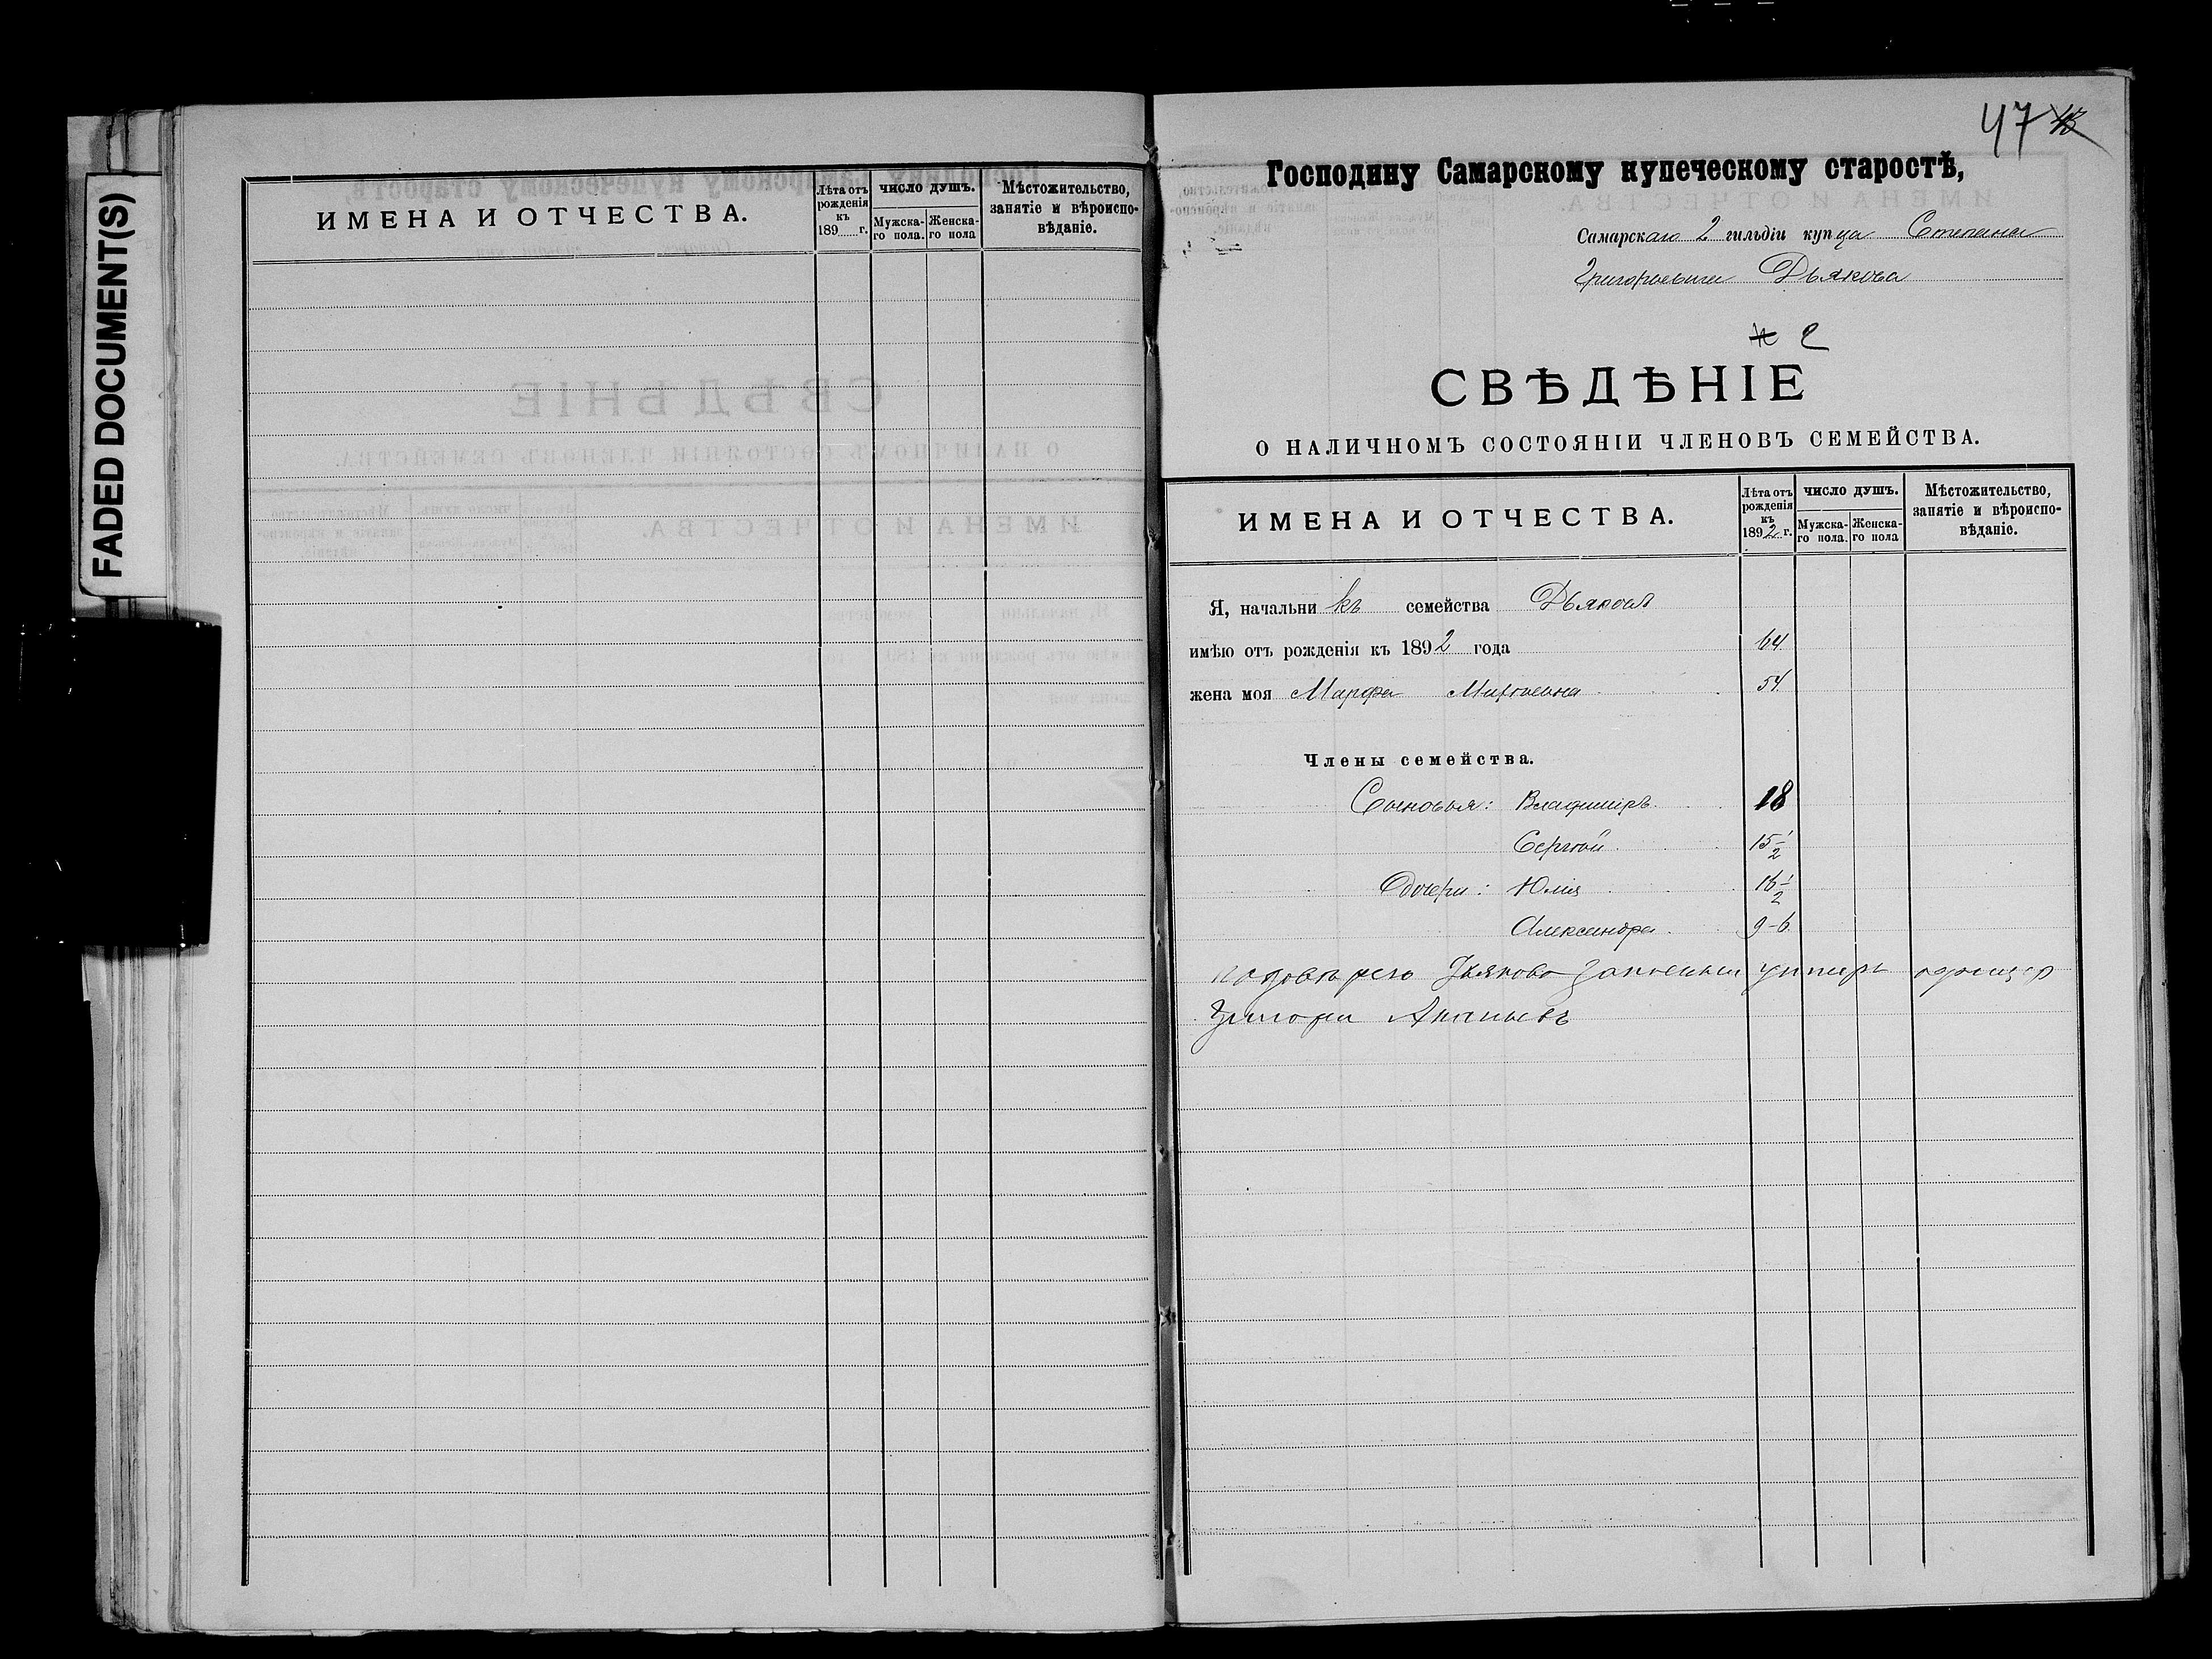 FADED DOCUMENT(S)
ИМЕНА И ОТЧЕСТВА.
Лѣта отъ рожденія къ 189 г.
ЧИСЛО ДУШЪ.
Мужска-го пола.
Женска-го пола
Мѣстожительство, занятіе и вѣроиспо-вѣданіе.
47
Господину Самарскому купеческому старостѣ,
Самарскаго 2 гильдіи купца Степана
Григорьевича Дьякова
2
СВѢДѢНІЕ
О НАЛИЧНОМЪ СОСТОЯНІИ ЧЛЕНОВЪ СЕМЕЙСТВА.
ИМЕНА И ОТЧЕСТВА.
Лѣта отъ рожденія къ 1892 г.
ЧИСЛО ДУШЪ.
Мужска-го пола.
Женска-го пола
Мѣстожительство, занятіе и вѣроиспо-вѣданіе.
Я, начальникъ семейства Дьяковъ
имѣю отъ рожденія къ 1892 года 64
жена моя Марфа 54
Члены семейства.
Сыновья: Владиміръ 18
Сергѣй 15 1/2
Дочери: Юлія 16 1/2
Александра 9-6
Дьякова унтеръ офицер
Григори Ананьевъ